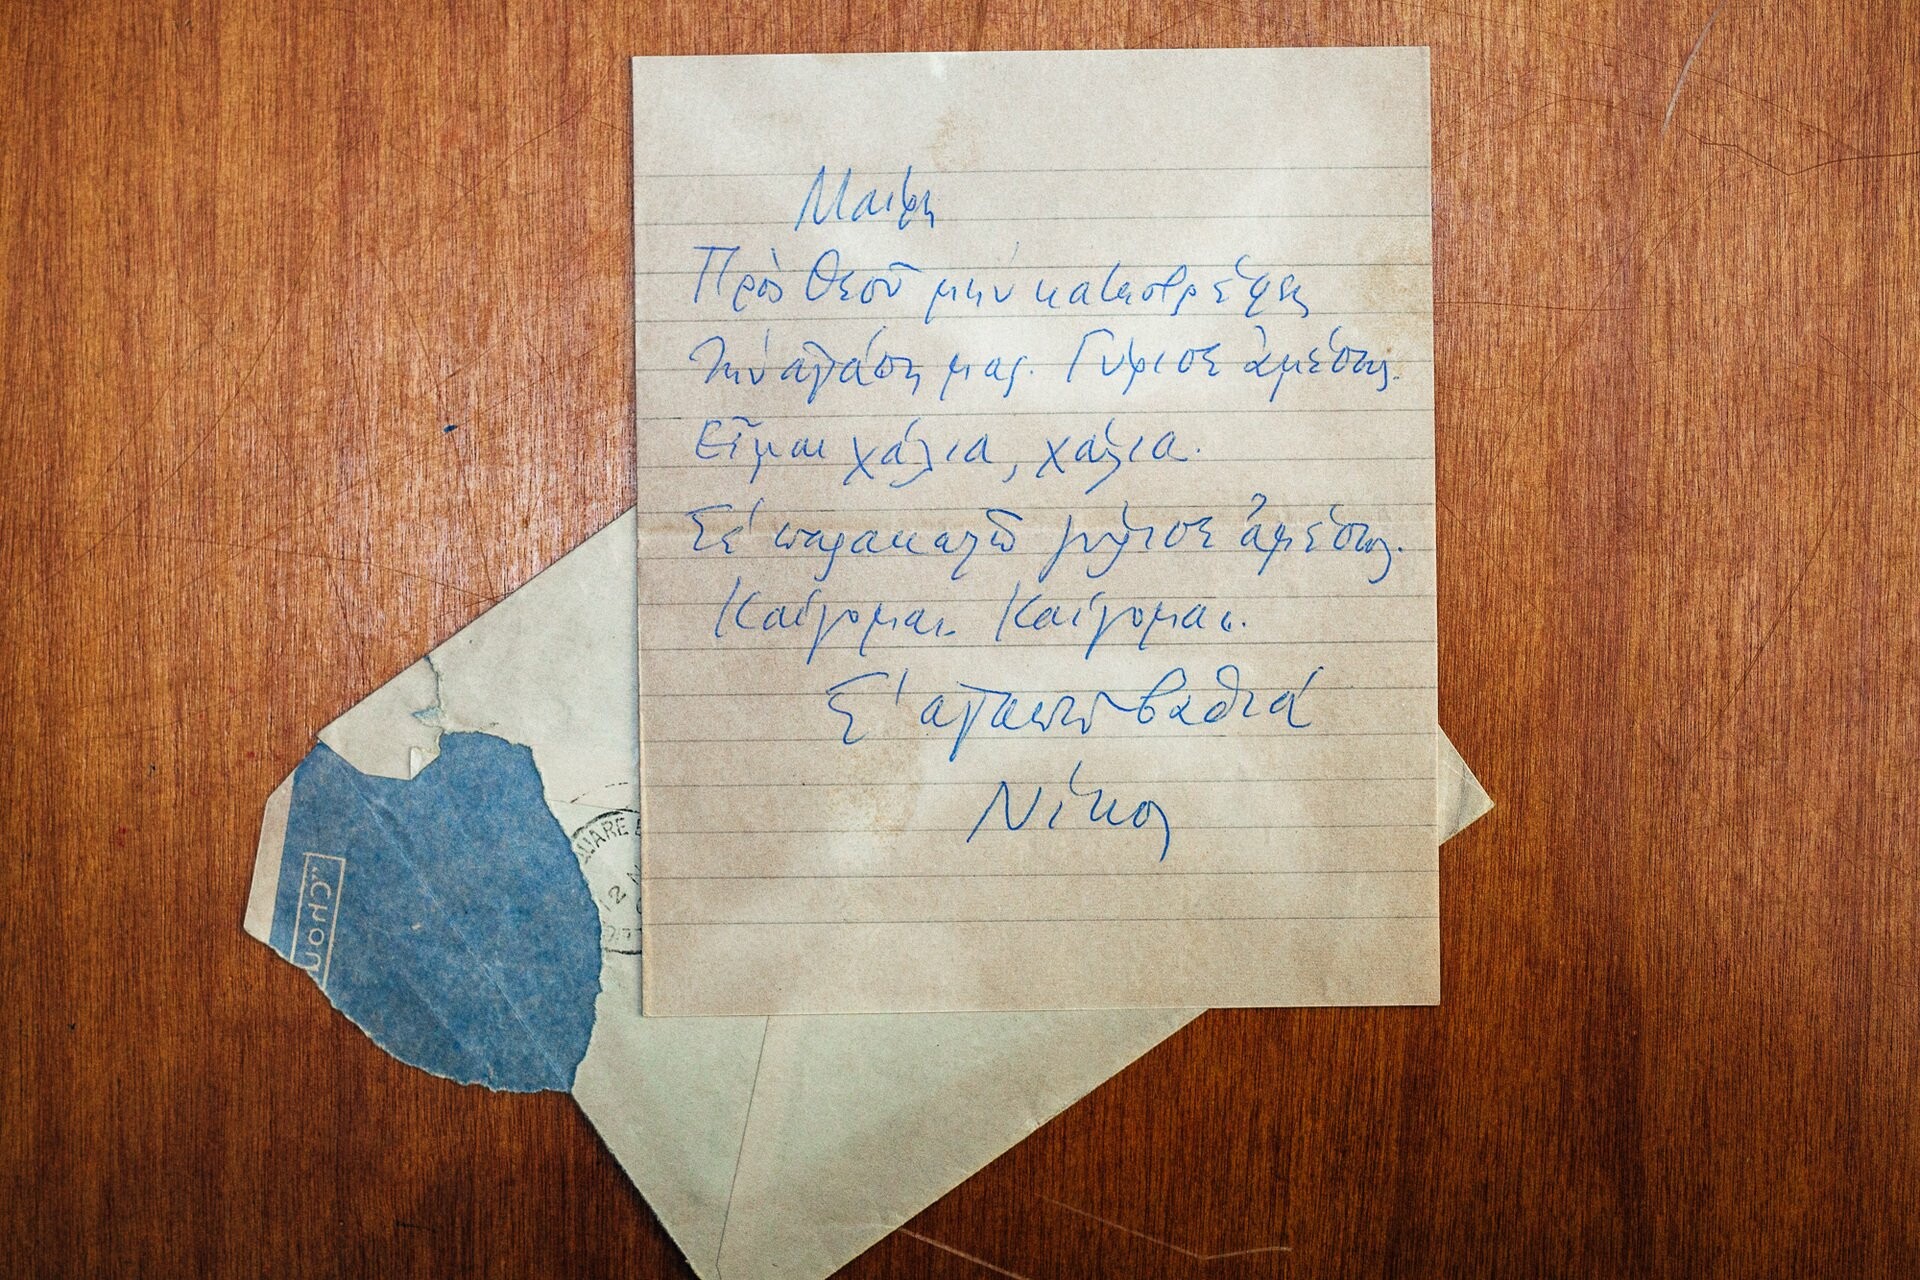 Μαίρη
Πρὸς Θεοῦ μὴν καταστρέψεις
τὴν ἀγάπη μας. Γύρισε ἀμέσως.
Εἶμαι χάλια, χάλια.
Σέ παρακαλῶ γύρισε ἀμέσως.
Καίγομαι. Καίγομαι.
Σ' αγαπῶ βαθιά
Νίκος
UARE
12